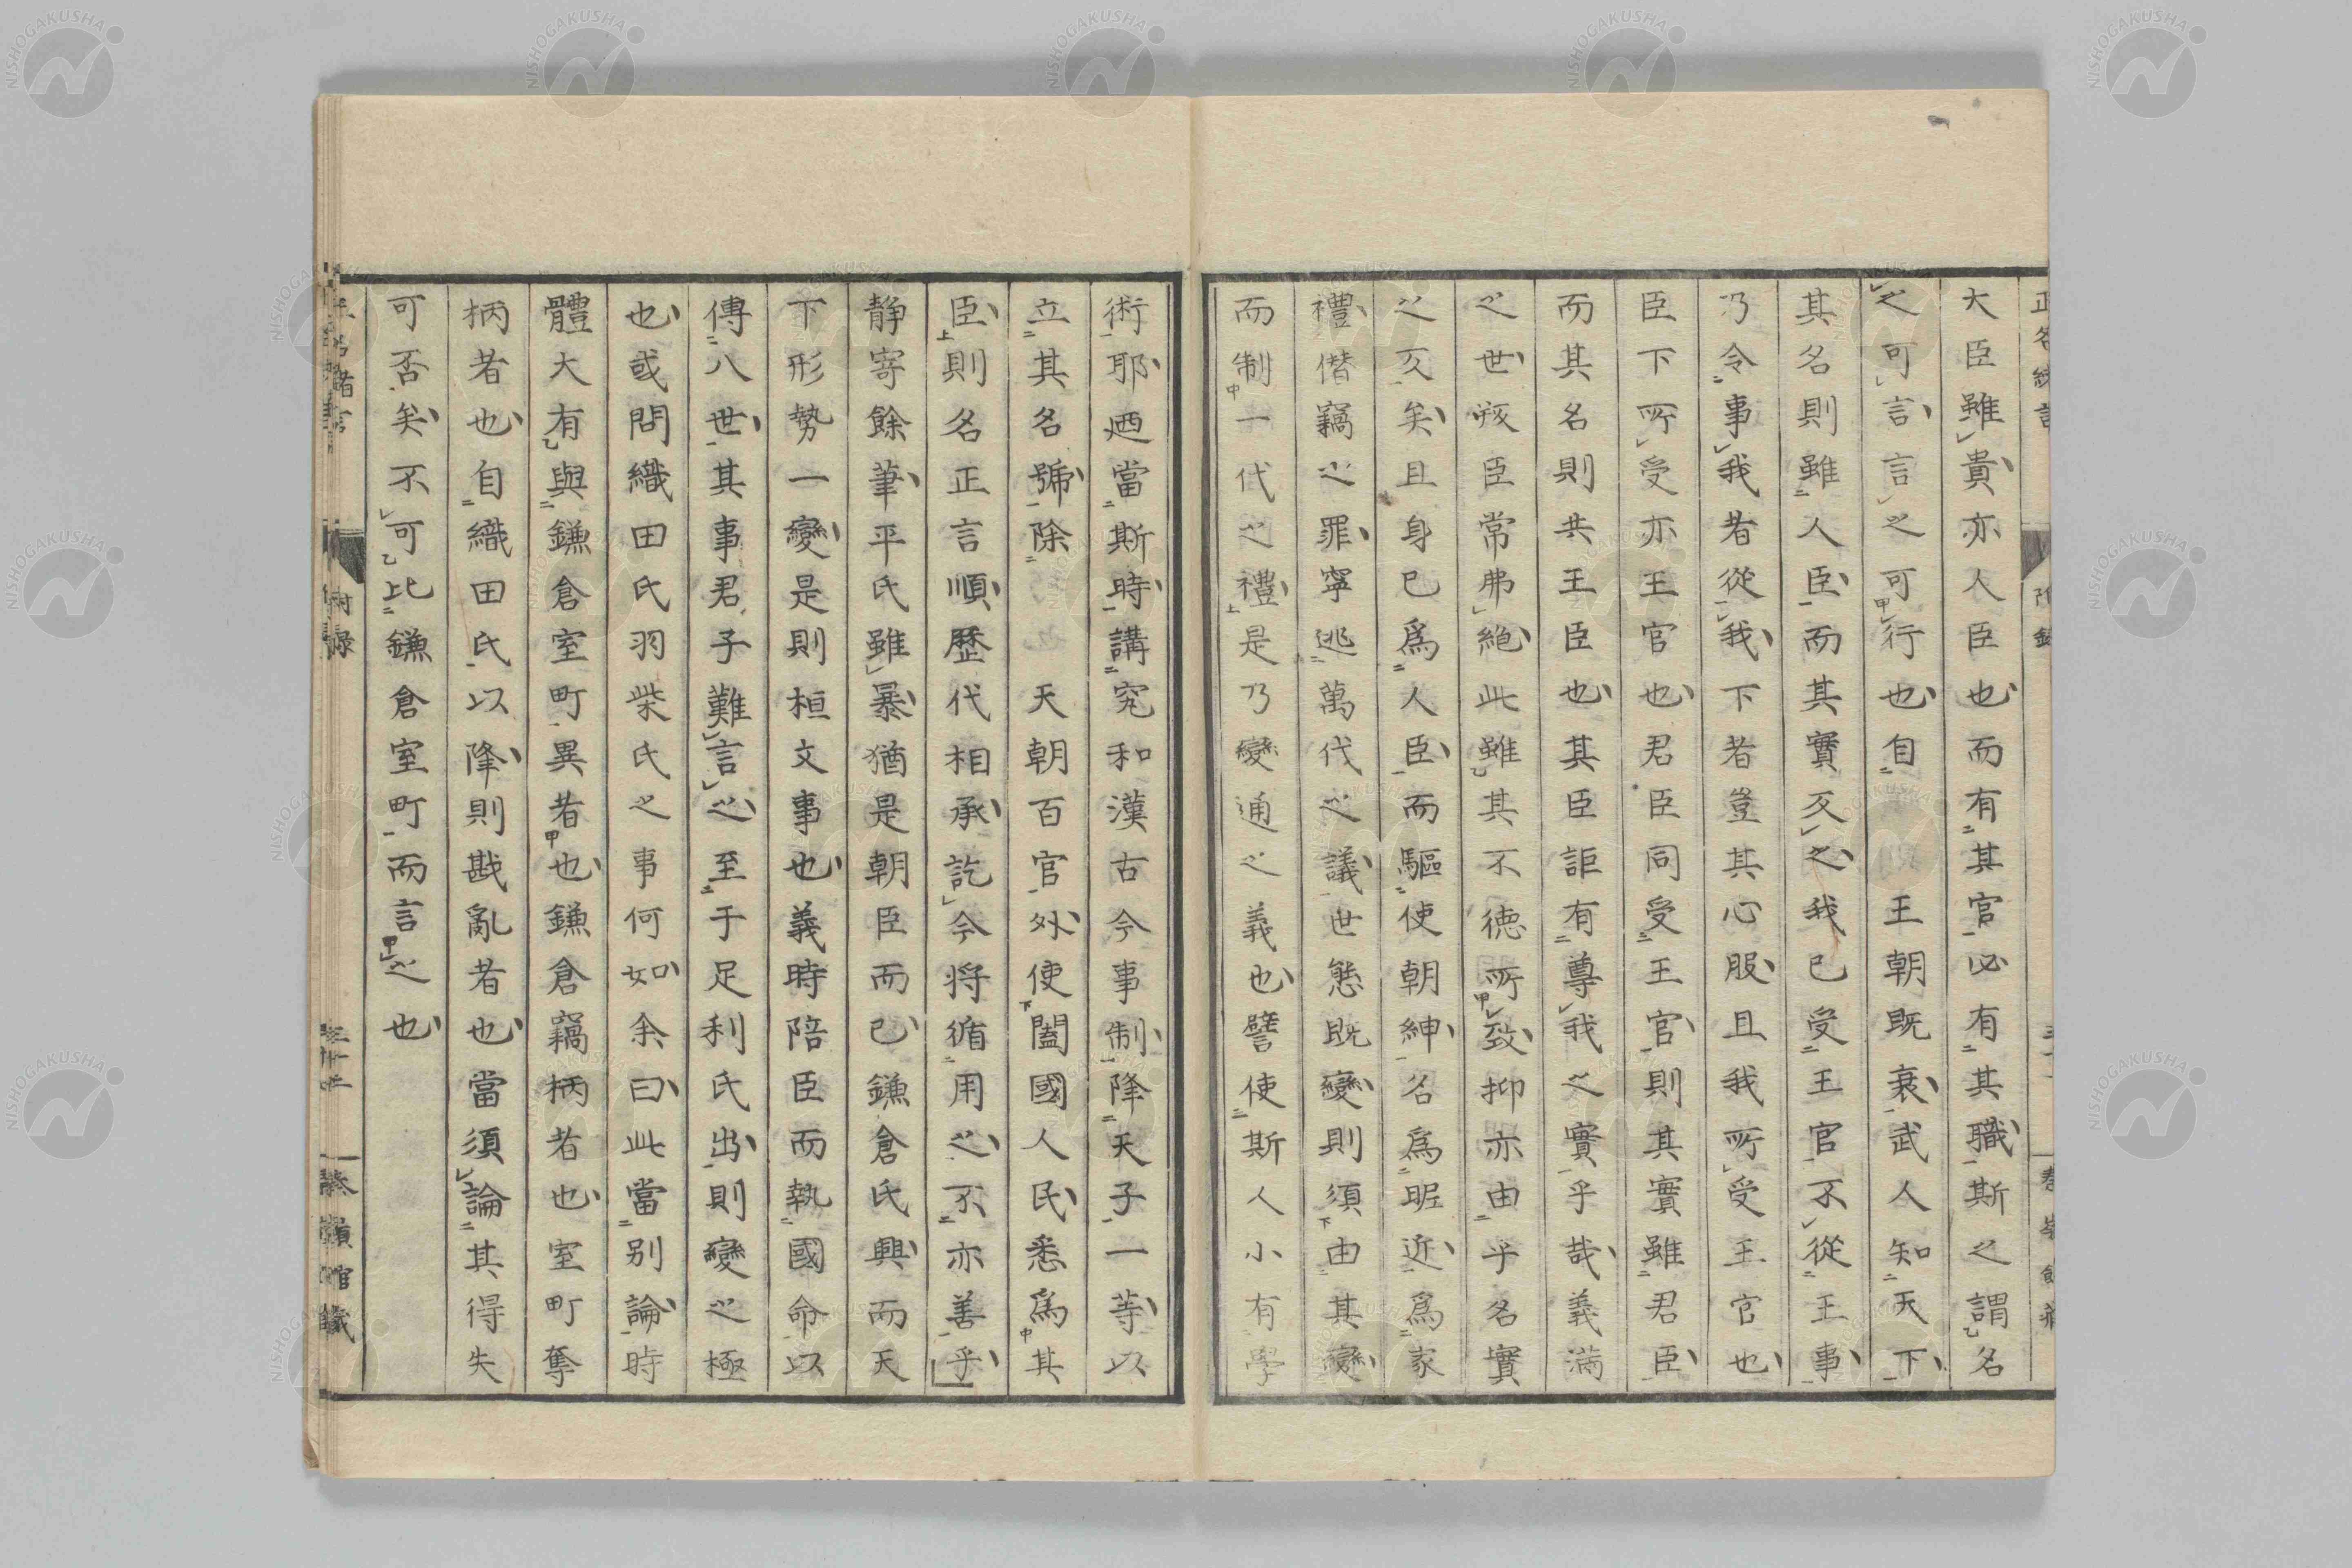 大臣雖貴亦人臣也而有其官必有其職斯之謂名
之可言言之可行也自　　王朝既衰武人知天下
其名則雖人臣而其實反之我已受王官不從王事
乃令事我者從我下者豈其心服且我所受王官也
臣下所受亦王官也君臣同受王官則其實雖君臣
而其名則共王臣也其臣詎有尊我之實乎哉義滿
之世唊臣常弗絶此雖其不德所致抑亦由乎名實
之反矣且身已爲人臣而驅使朝紳名爲昵近爲家
禮僭竊之罪寧逃萬代之議世態既變則須由其變
而制一代之禮是乃變通之義也譬使斯人小有學
術耶迺當斯時講究和漢古今事制降天子一等以
立其名號除　　天朝百官外使闔國人民悉爲其
臣則名正言順歷代相承訖今將循用之不亦善乎
静寄餘筆平氏雖暴猶是朝臣而已鎌倉氏興而天
下形勢一變是則桓文事也義時陪臣而執國命以
傳八世其事君子難言之至于足利氏出則變之極
也或問織田氏羽柴氏之事何如余曰此當别論時
體大有與鎌倉室町異者也鎌倉竊柄者也室町奪
柄者也自織田氏以降則戡亂者也當須論其得失
可否矣不可比鎌倉室町而言之也
附録